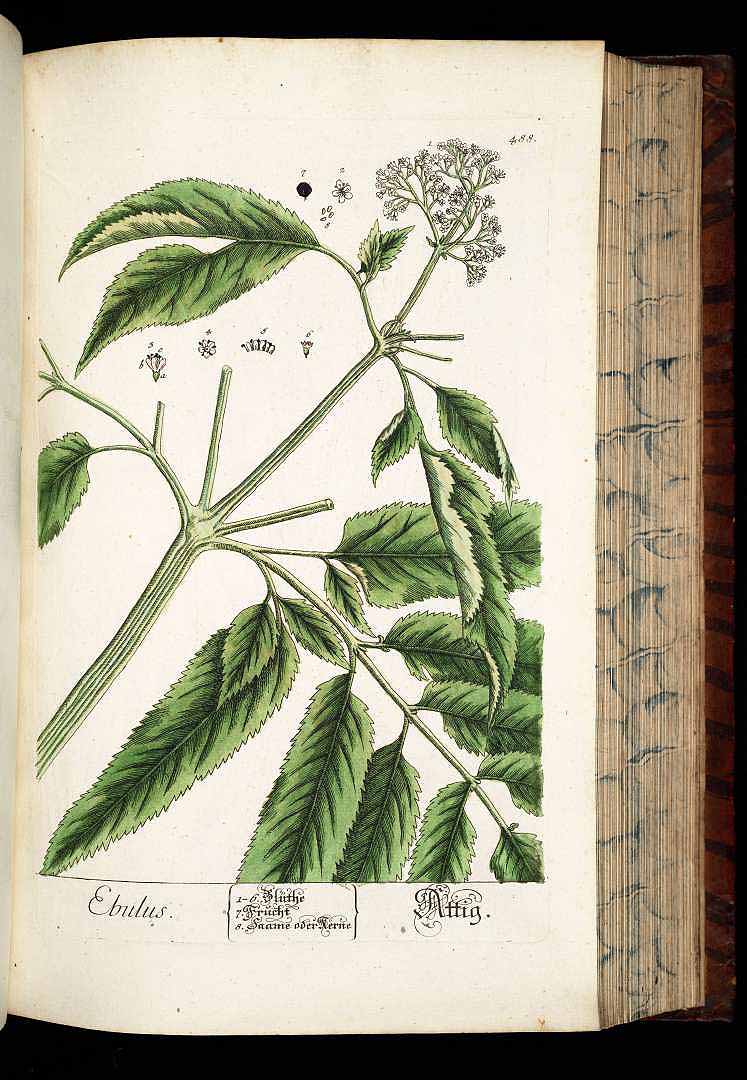 488.
1
7 2
8
3 4 5 6
b c
a
Ebulus.
1-6. Blüthe
7. Frucht
8. Saame oder Kerne
Attig.